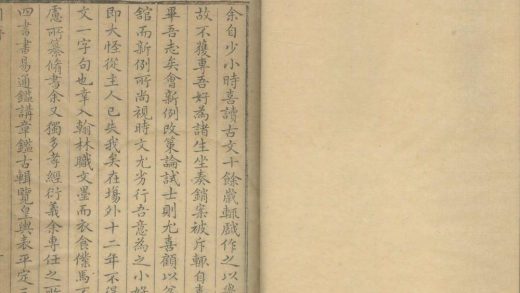 余自少小時喜讀古文十餘歲輒戲作之以
故不獲專吾好為諸生坐奏銷案被斥輒自
畢吾志矣會新例改策論試士則尤喜顧以
舘而新例所尚視時文尤劣行吾意為之小好
即大怪從主人已失我矣在塲外十二年不得
文一字句也幸入翰林職文墨而衣食僕馬不
慮所纂脩書余又獨多孝經衍義余專任之所
四書書易通鑑講章鑑古輯覽皇輿表平定三